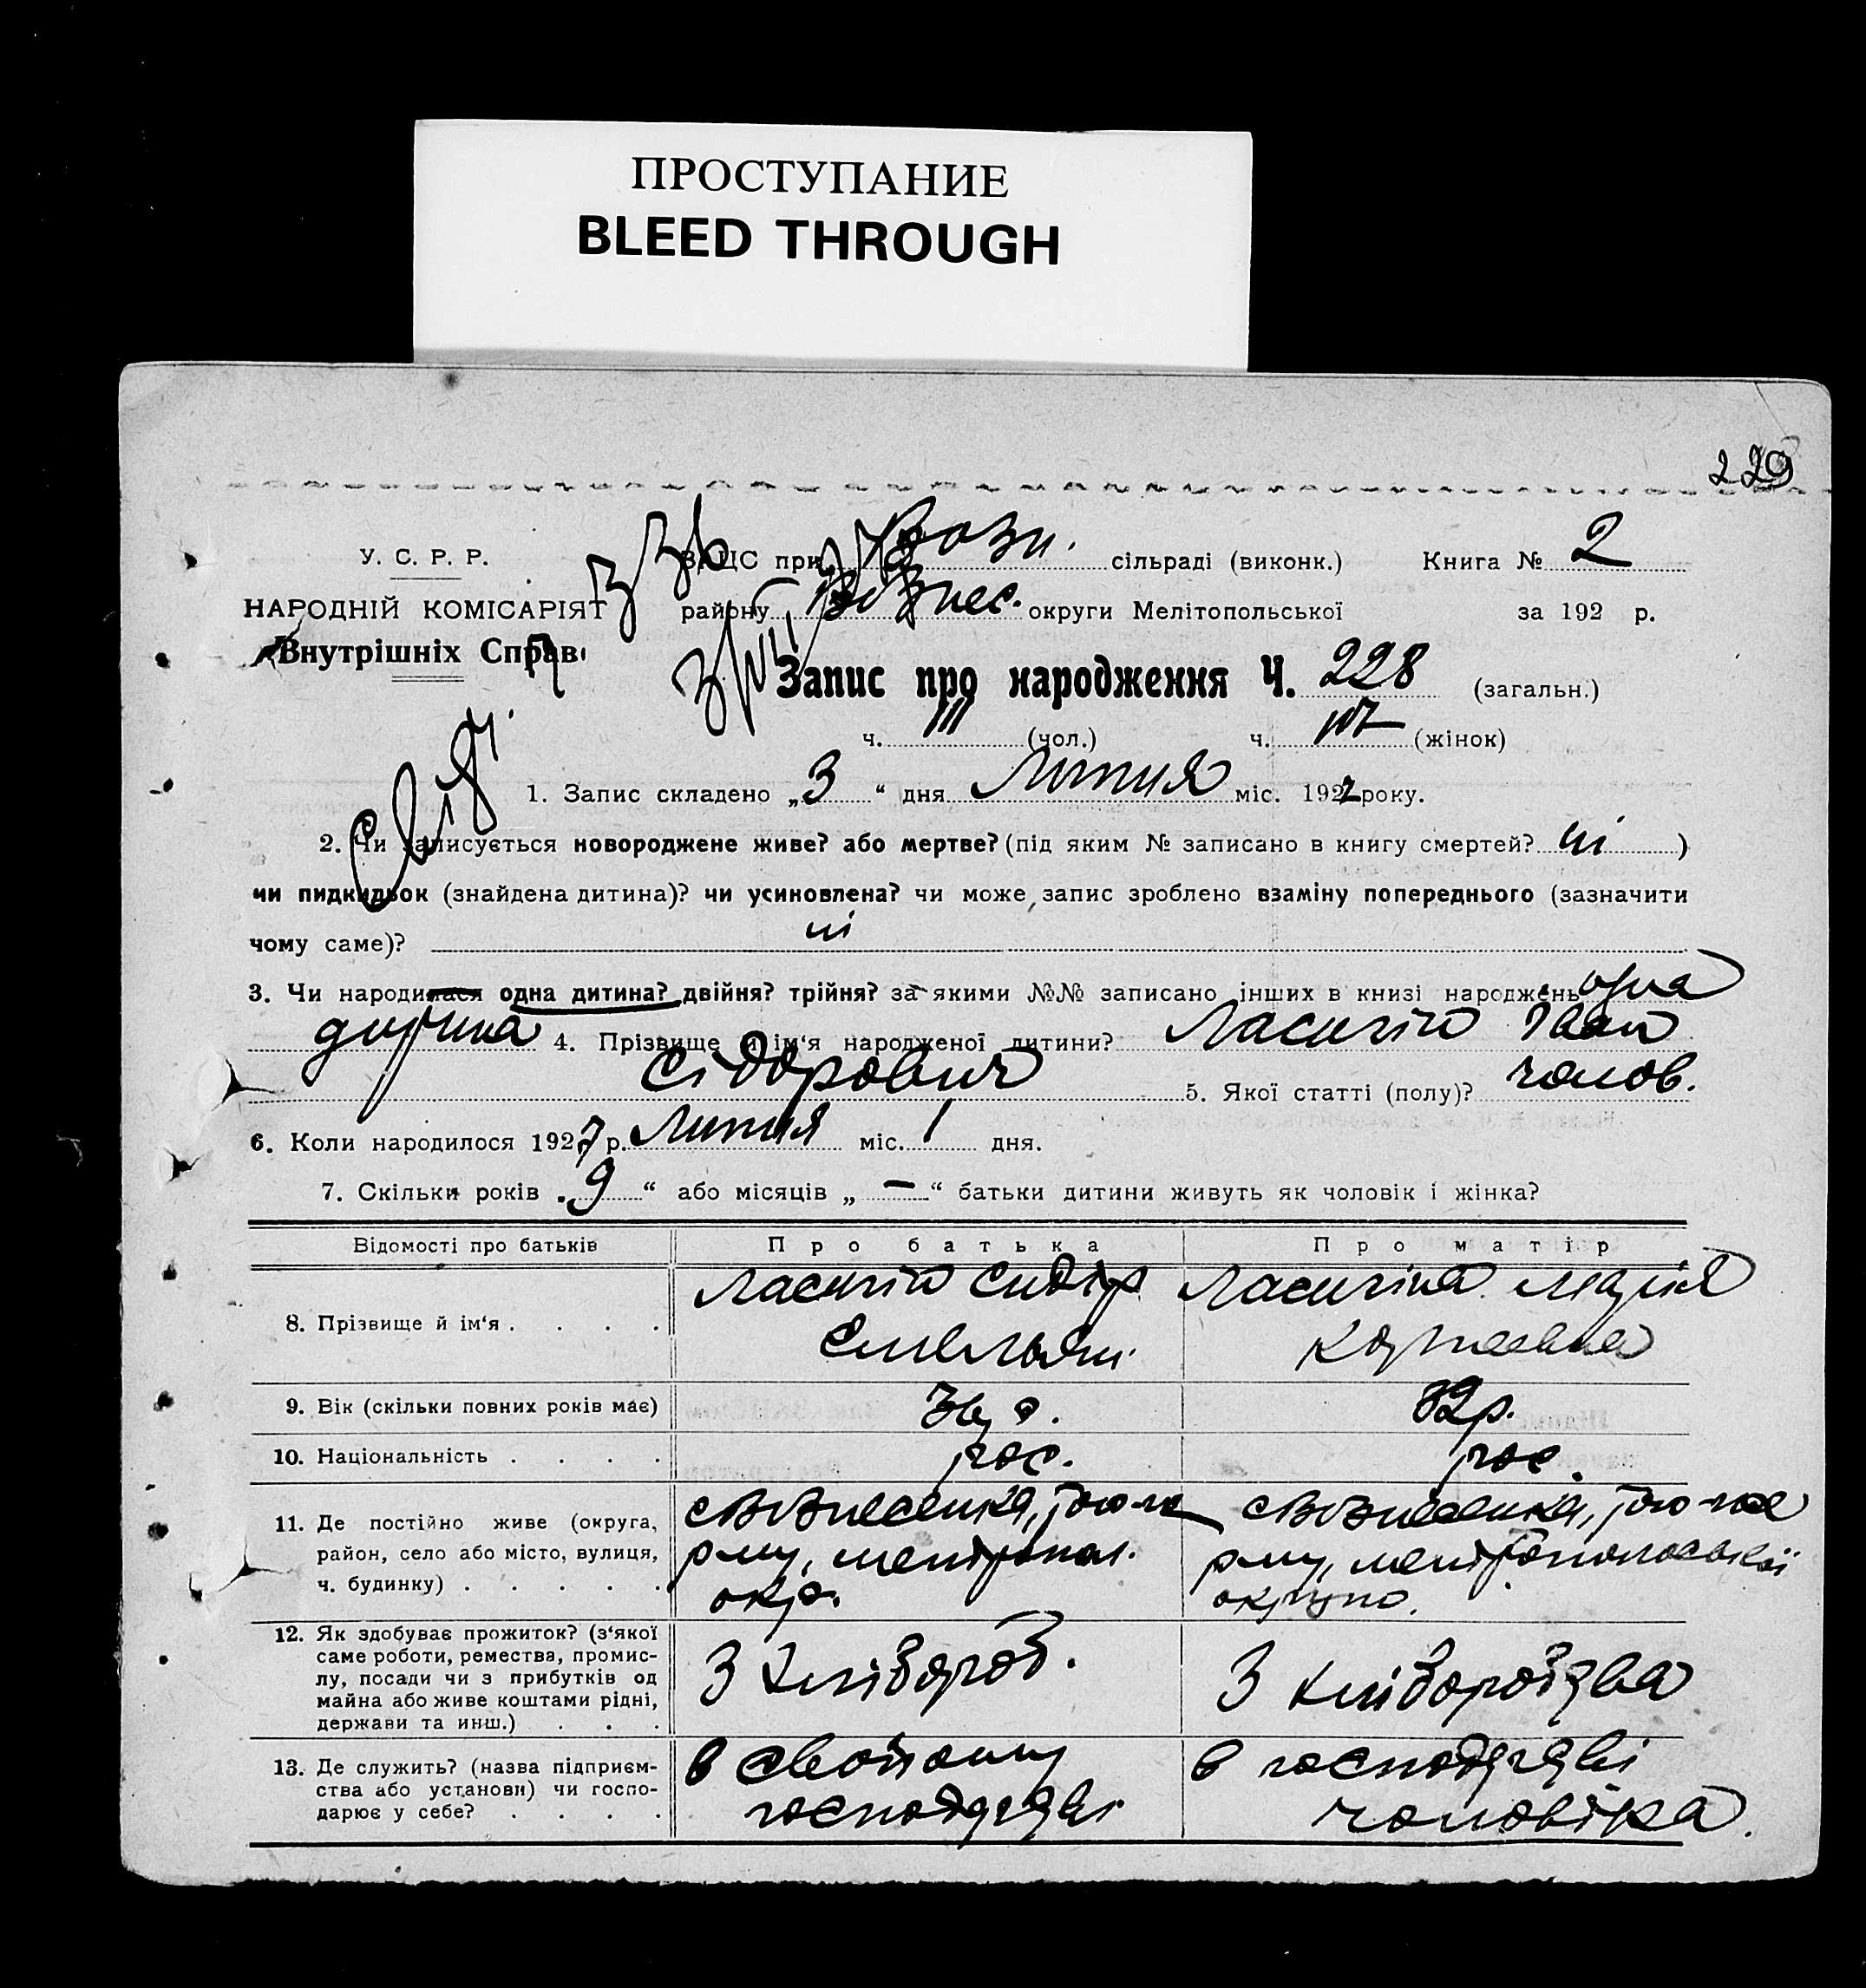 ПРОСТУПАНИЕ
BLEED THROUGH
229
У. С. Р. Р.
ЗАЦС при Возн. сільраді (виконк.) Книга № 2
НАРОДНІЙ КОМІСАРІЯТ
району Вознес. округи Мелітопольської за 192 р.
Внутрішніх Справ
Запис про народження Ч. 228 (загальн.)
ч. 111 (чол.) ч. 117 (жінок)
1. Запис складено „3“ дня Липня міс. 1927 року.
2. Чи записується новороджене живе? або мертве? (під яким № записано в книгу смертей? ні )
чи пидкидьок (знайдена дитина)? чи усиновлена? чи може запис зроблено взаміну попереднього (зазначити
чому саме)? ні
3. Чи народилася одна дитина? двійня? трійня? за якими №№ записано інших в книзі народжень одна
дитина 4. Прізвище й ім‘я народженої дитини? Ласичін Іван
Сідорович 5. Якої статті (полу)? чолов.
6. Коли народилося 1927 р. Липня міс. 1 дня.
7. Скільки років „9“ або місяців „—“ батьки дитини живуть як чоловік і жінка?
Відомості про батьків Про батька Про матір
8. Прізвище й ім‘я . . . . Ласичін Сидір Ємельян. Ласичіна Марія
9. Вік (скільки повних років має) 36 р. 32 р.
10. Національність . . . . рос. рос.
11. Де постійно живе (округа, район, село або місто, вулиця, ч. будинку) . . . . . с Вознесенка, того-ж р-ну, мелітопол. окр. с Вознесенка, того-ж р-ну, мелітопольської округи.
12. Як здобуває прожиток? (з‘якої саме роботи, ремества, промислу, посади чи з прибутків од майна або живе коштами рідні, держави та инш.) . . . З хлібороб. З хліборобства
13. Де служить? (назва підприємства або установи) чи господарює у себе? . . . . В своїому господарстві В господарстві чоловіка.